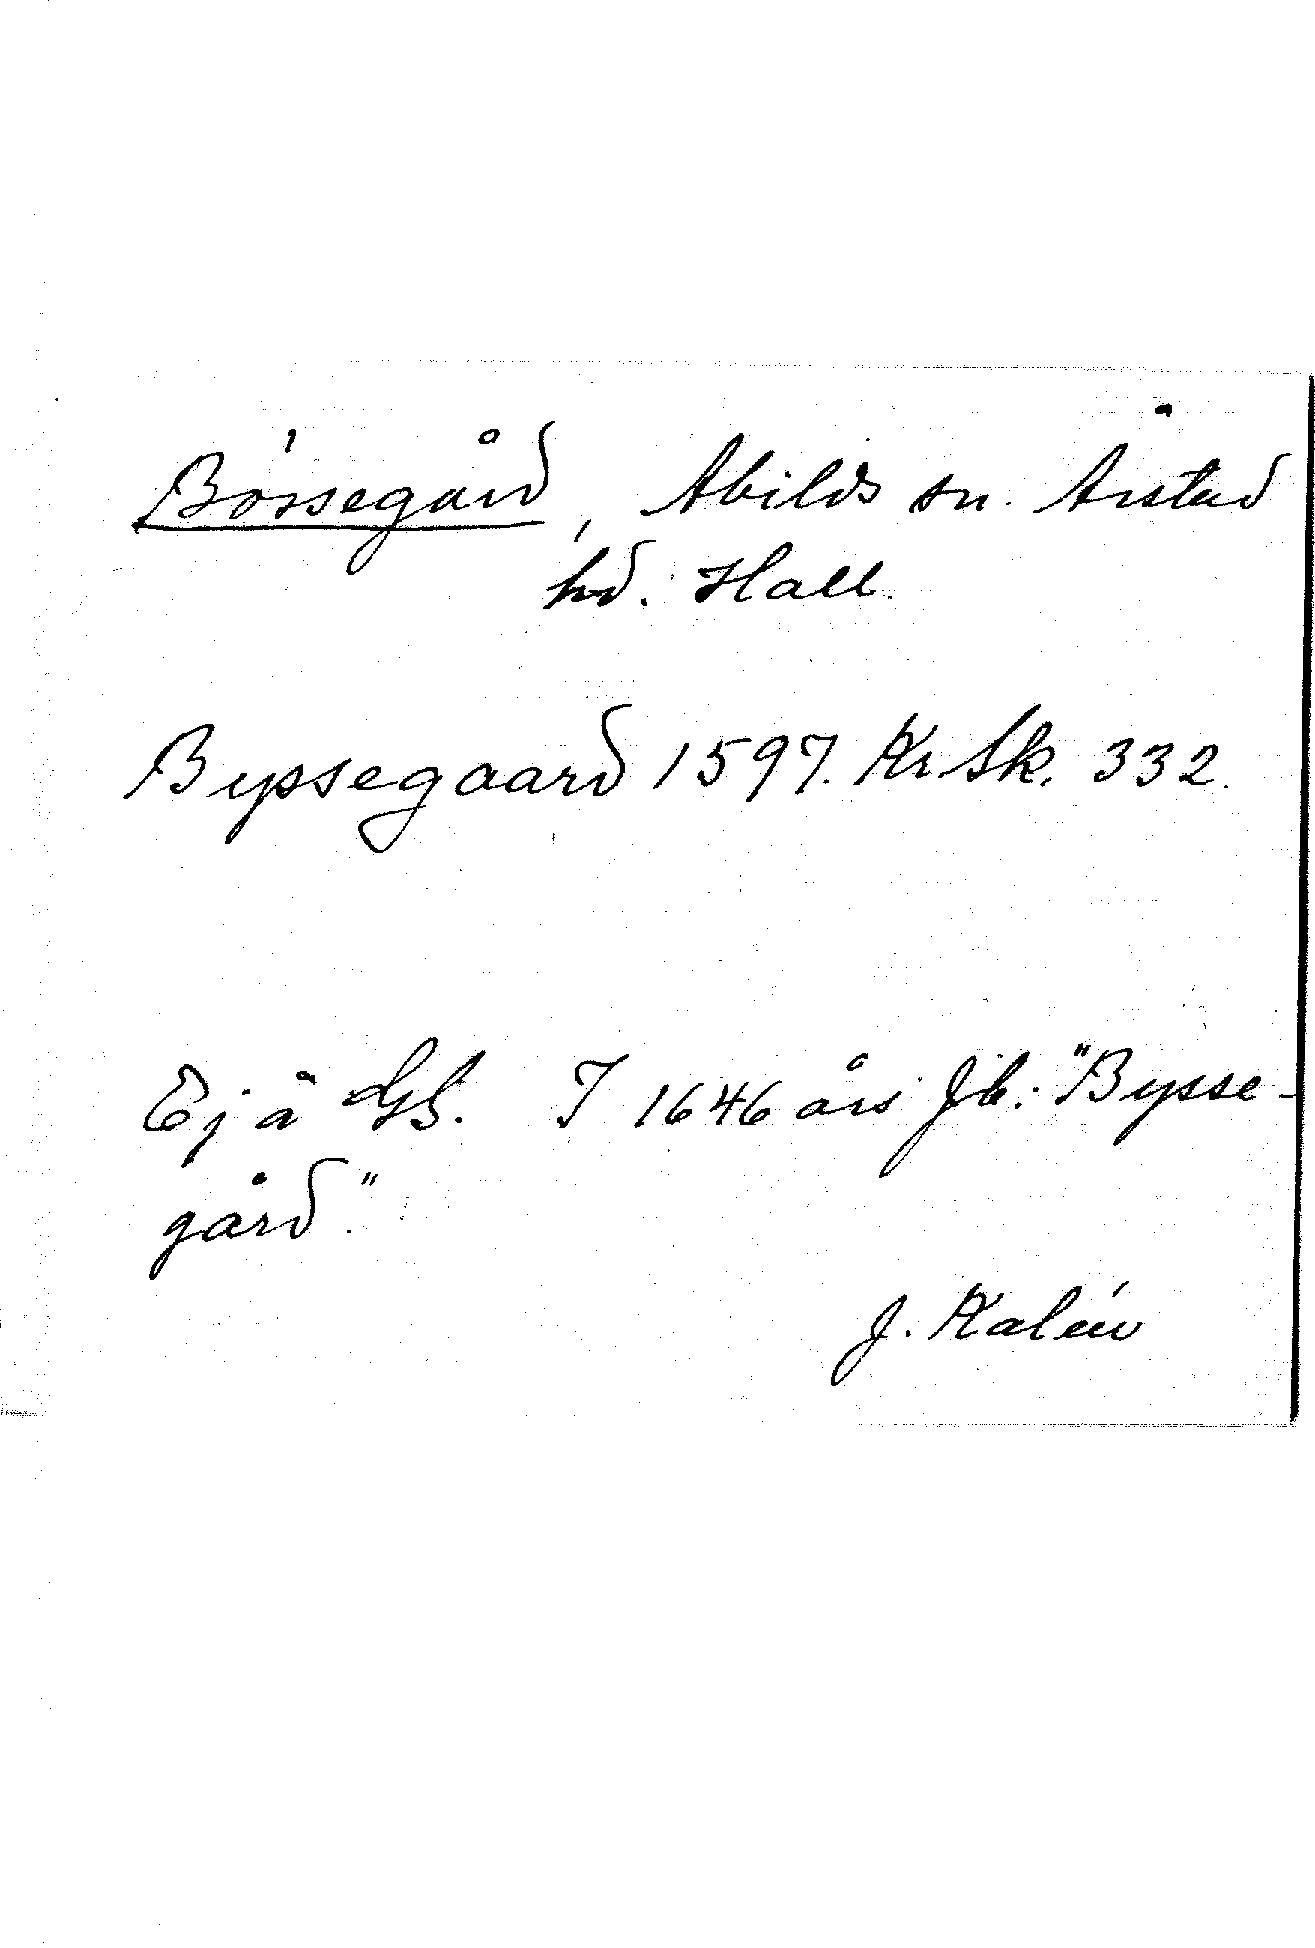 Bössegård, Abilds sn. Årstad
hd. Hall.
Byssegaard 1597. Kr Sk. 332.
Ej å GS. I 1646 års Jb.: "Bysse-
gård."
J. Kalén